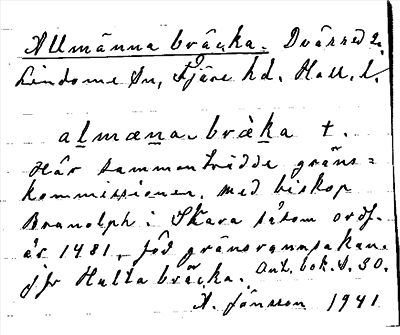 Allmänna bräcka. Dvärred 2.
Lindome sn, Fjäre hd. Hall. l.
almæna-bræka +.
Här sammanträdde gräns=
kommissionen, med biskop
Brynolph i Skara såsom ordf.
år 1481, för gränsrannsakan.
jfr Hulta bräcka. Ant. bok. s. 30.
A. Jönsson 1941